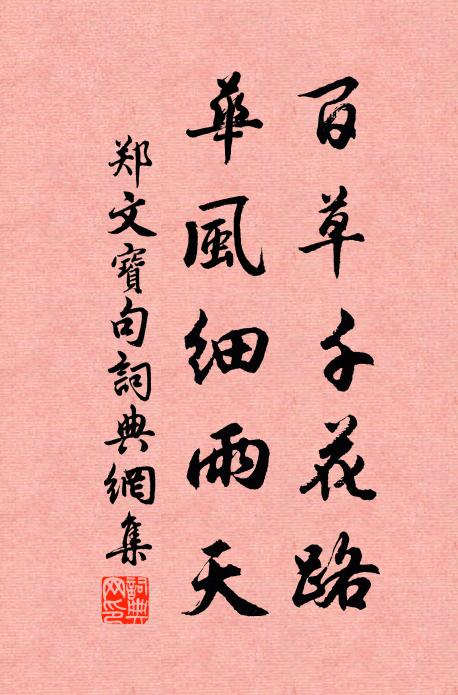 百草千花路
華風細雨天
郑文寶句詞典網集
詞典網印